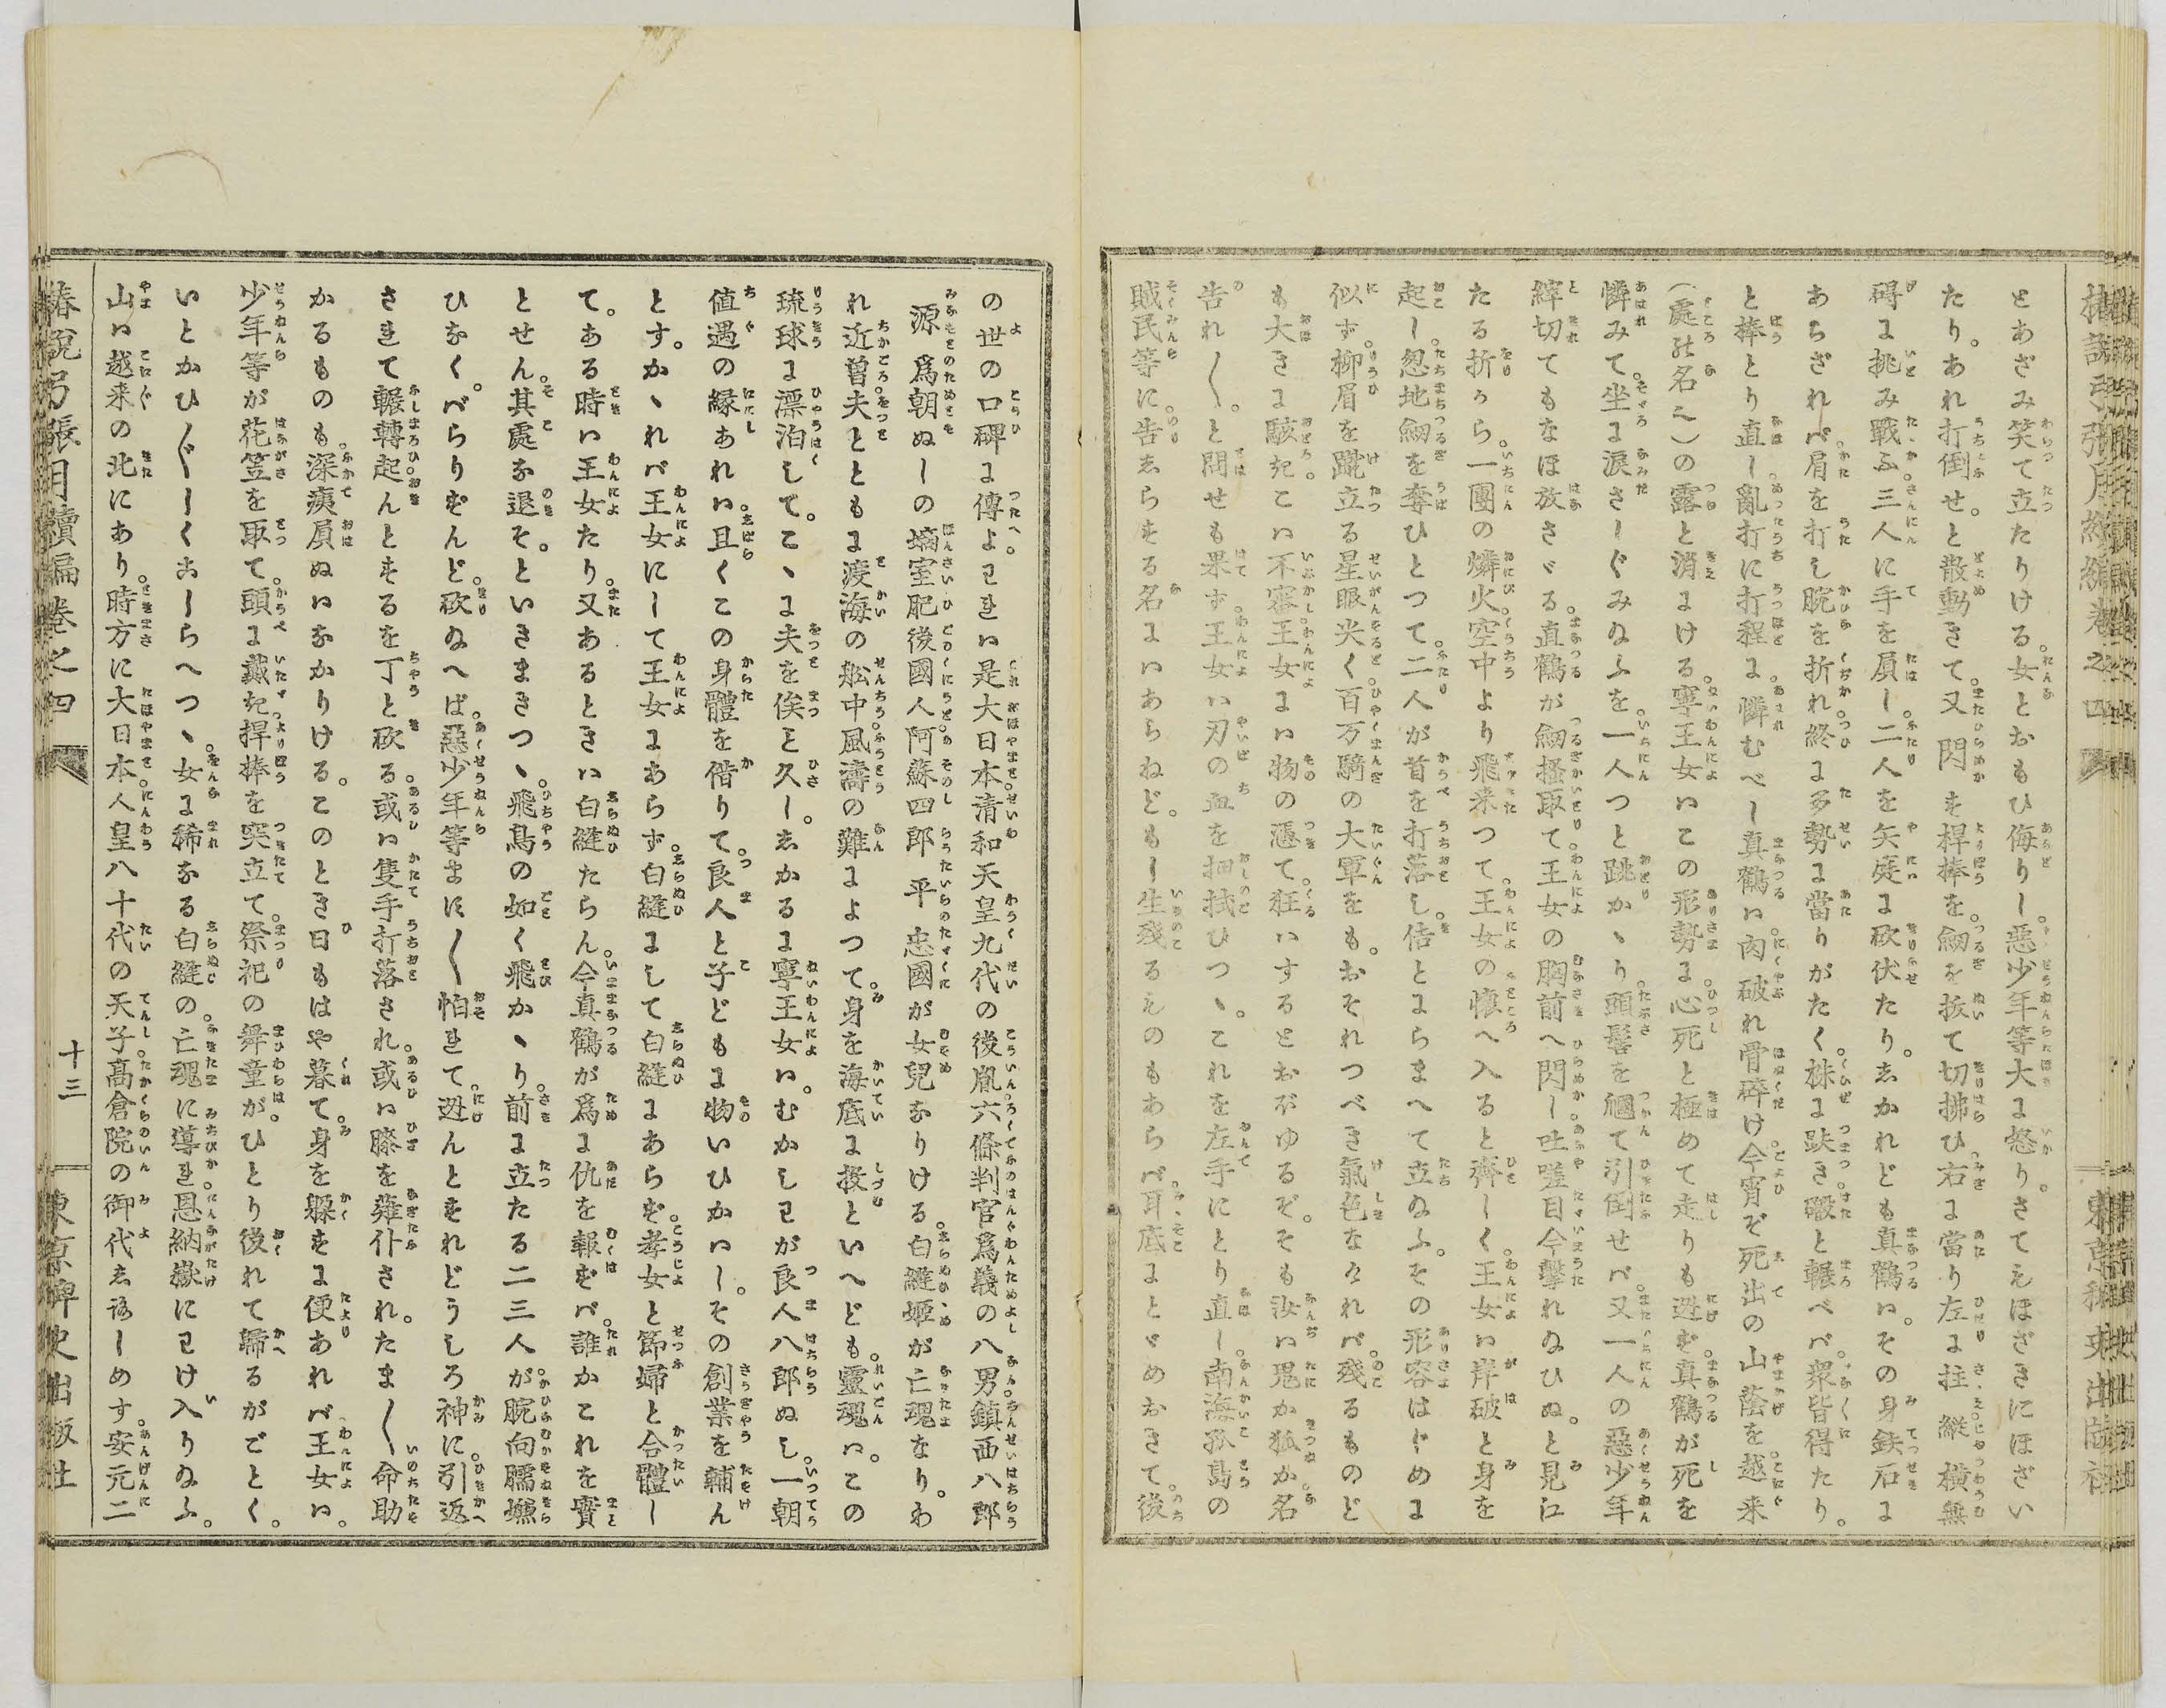 椿説弓張月續編卷之四
東京稗史出版社
とあざみ笑て立たりける。女とおもひ侮りし。惡少年等大に怒り。さてえほざきにほざい
たり。あれ打倒せ。と散動きて又閃かす桿棒を。劔を抜て切拂ひ右に當り左に拄縱横無
碍に挑み戰ふ。三人に手を屓し二人を矢庭に砍伏たり。しかれども真鶴は。その身鉄石に
あらざれバ。肩を打し腕を折れ終に多勢に當りがたく。株に趺き撥と輾べバ。衆皆得たり。
と棒とり直し亂打に打程に。憐むべし真鶴は。肉破れ骨碎け今宵ぞ死出の山蔭を。越来
(處の名也)の露と消にける。寧王女はこの形勢に。心死と極めて走りも迯ず。真鶴が死を
憐みて。坐に涙さしぐみ給ふを。一人つと跳かゝり。頭髻を㧽て引倒せバ。又一人の惡少年
縡切てもなほ放さゞる。直鶴が劔搔取て。王女の胸前へ閃し吐嗟目今擊れ給ひぬ。と見江
たる折から。一團の燐火空中より飛来つて。王女の懷へ入ると齊しく。王女は岸破と身を
起し。忽地劔を奪ひとつて。二人が首を打落し。佶とにらまへて立給ふ。その形容はじめに
似ず。柳眉を蹴立る星眼尖く。百万騎の大軍をも。おそれつべき氣色なれバ。殘るものど
も大きに駭きこは不審。王女には物の憑て。狂はするとおぼゆるぞ。そも汝は鬼か狐か。名
告れ〳〵。と問せも果ず。王女は刃の血を押拭ひつゝ。これを左手にとり直し。南海孤島の
賊民等に。告しらする名にはあらねど。もし生殘るえのもあらバ。耳底にとゞめおきて。後
の世の口碑に傳よ。われは是大日本。清和天皇九代の後胤。六條判官爲義の八男。鎮西八郎
源爲朝ぬしの嫡室。肥後國人。阿蘇四郎平忠國が女兒なりける。白縫姫が亡魂なり。わ
れ近曽。夫とともに渡海の舩中。風濤の難によつて。身を海底に投といへども。靈魂は。この
琉球に漂泊して。こゝに夫を俟と久し。しかるに寧王女は。むかしわが良人八郎ぬし。一朝
値遇の縁あれは。且くこの身體を借りて。良人と子どもに物いひかはし。その創業を輔ん
とす。かゝれバ王女にして王女にあらず。白縫にして白縫にあらず。孝女と節婦と合體し
て。ある時は王女たり。又あるときは白縫たらん。今真鶴が爲に仇を報ずバ。誰かこれを實
とせん。其處な退そ。といきまきつゝ。飛鳥の如く飛かゝり。前に立たる二三人が。腕向臑嫌
ひなく。ばらりずんど。砍給へば。惡少年等ますます〳〵怕れて。迯んとすれどうしろ神に。引返
されて輾轉。起んとするを丁と砍る。或は隻手打落され。或は膝を薙仆され。たま〳〵命助
かるものも。深痍屓ぬはなかりける。このとき日もはや暮て。身を躱すに便あれバ。王女は。
少年等が花笠を取て。頭に戴き。桿棒を突立て。祭祀の舞童が。ひとり後れて歸るがごとく。
いとかひ〴〵しくおしらへつゝ。女に稀なる白縫の。亡魂に導れ。恩納嶽にわけ入り給ふ。
山は越来の北にあり。時方に大日本。人皇八十代の天子。髙倉院の御代しろしめす。安元二
椿説弓張月續編卷之四
十三
東京稗史出版社